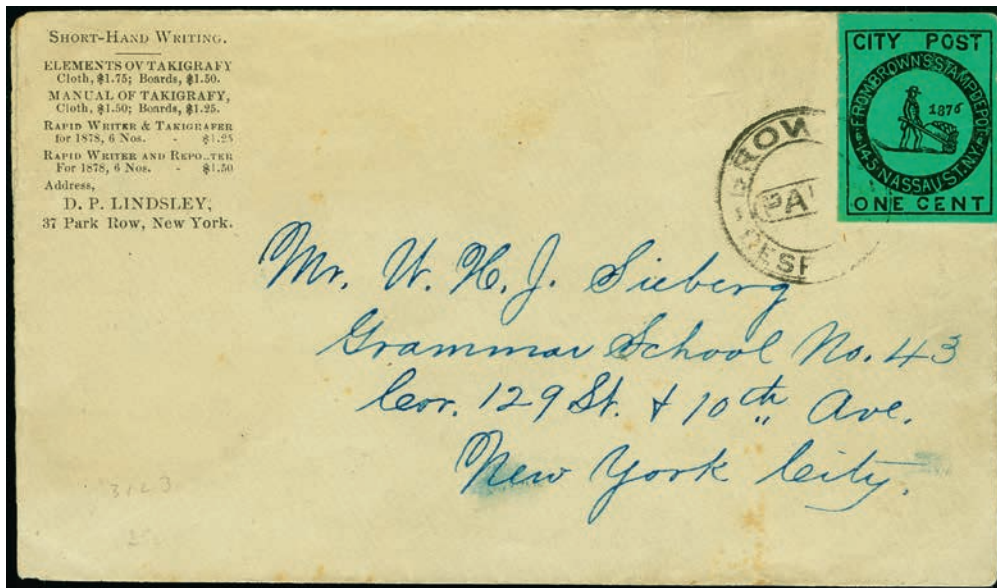 SHORT-HAND WRITING.
ELEMENTS OV TAKIGRAFY
Cloth, $1.75; Boards, $1.50.
MANUAL OF TAKIGRAFY,
Cloth, $1.50; Boards, $1.25.
RAPID WRITER & TAKIGRAFER
for 1878, 6 Nos. - $1.25
RAPID WRITER AND REPO..TER
For 1878, 6 Nos. - $1.50
Address,
D. P. LINDSLEY,
37 Park Row, New York.
CITY POST
FROM BROWN'S STAMP DEPOT
1876
145 NASSAU ST. N.Y.
ONE CENT
BROW
PAI
DESP
Mr. W. H. J. Sieberg
Grammar School No. 43
Cor. 129 St. & 10th Ave.
New York City.
3123